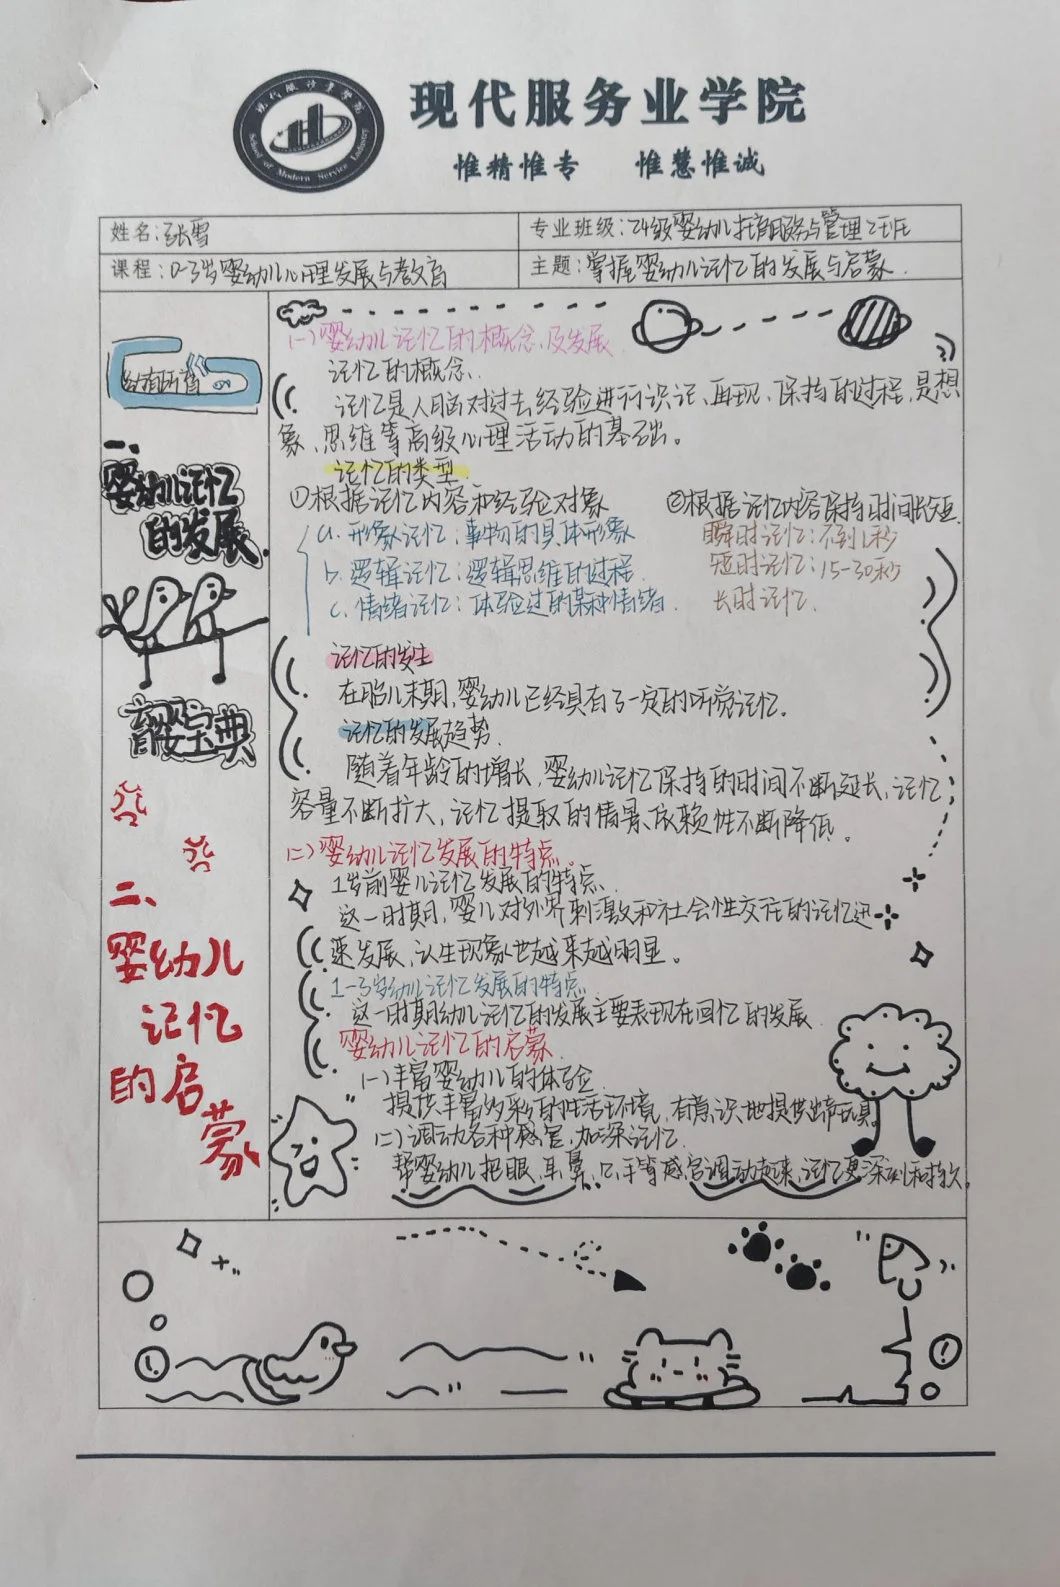 现代服务业学院
School of Modern Service Industry
现代服务业学院
惟精惟专 惟慧惟诚
姓名:张雪
专业班级:24级婴幼儿托育服务与管理2班
课程:0-3岁婴幼儿心理发展与教育
主题:掌握婴幼儿记忆的发展与启蒙.
幼有所育
一、
婴幼儿记忆
的发展.
育婴宝典
二、
婴幼儿
记忆
的启
蒙
(一)婴幼儿记忆的概念及发展
记忆的概念.
记忆是人脑对过去经验进行识记、再现、保持的过程,是想
象、思维等高级心理活动的基础。
记忆的类型
①根据记忆内容和经验对象
a.形象记忆:事物的具体形象
b.逻辑记忆:逻辑思维的过程.
c.情绪记忆:体验过的某种情绪.
②根据记忆内容保持时间长短.
瞬时记忆:不到1秒
短时记忆:15-30秒
长时记忆.
记忆的发生
在胎儿末期,婴幼儿已经具有了一定的听觉记忆.
记忆的发展趋势.
随着年龄的增长,婴幼儿记忆保持的时间不断延长,记忆
容量不断扩大,记忆提取的情景依赖性不断降低。
(二)婴幼儿记忆发展的特点.
1岁前婴儿记忆发展的特点.
这一时期,婴儿对外界刺激和社会性交往的记忆迅
速发展,认生现象也越来越明显。
1-3岁幼儿记忆发展的特点
这一时期幼儿记忆的发展主要表现在回忆的发展
婴幼儿记忆的启蒙
(一)丰富婴幼儿的体验.
提供丰富多彩的生活环境,有意识地提供玩具.
(二)调动各种感官,加深记忆.
帮婴幼儿把眼、耳、鼻、口、手等感官调动起来,记忆更深刻和持久。